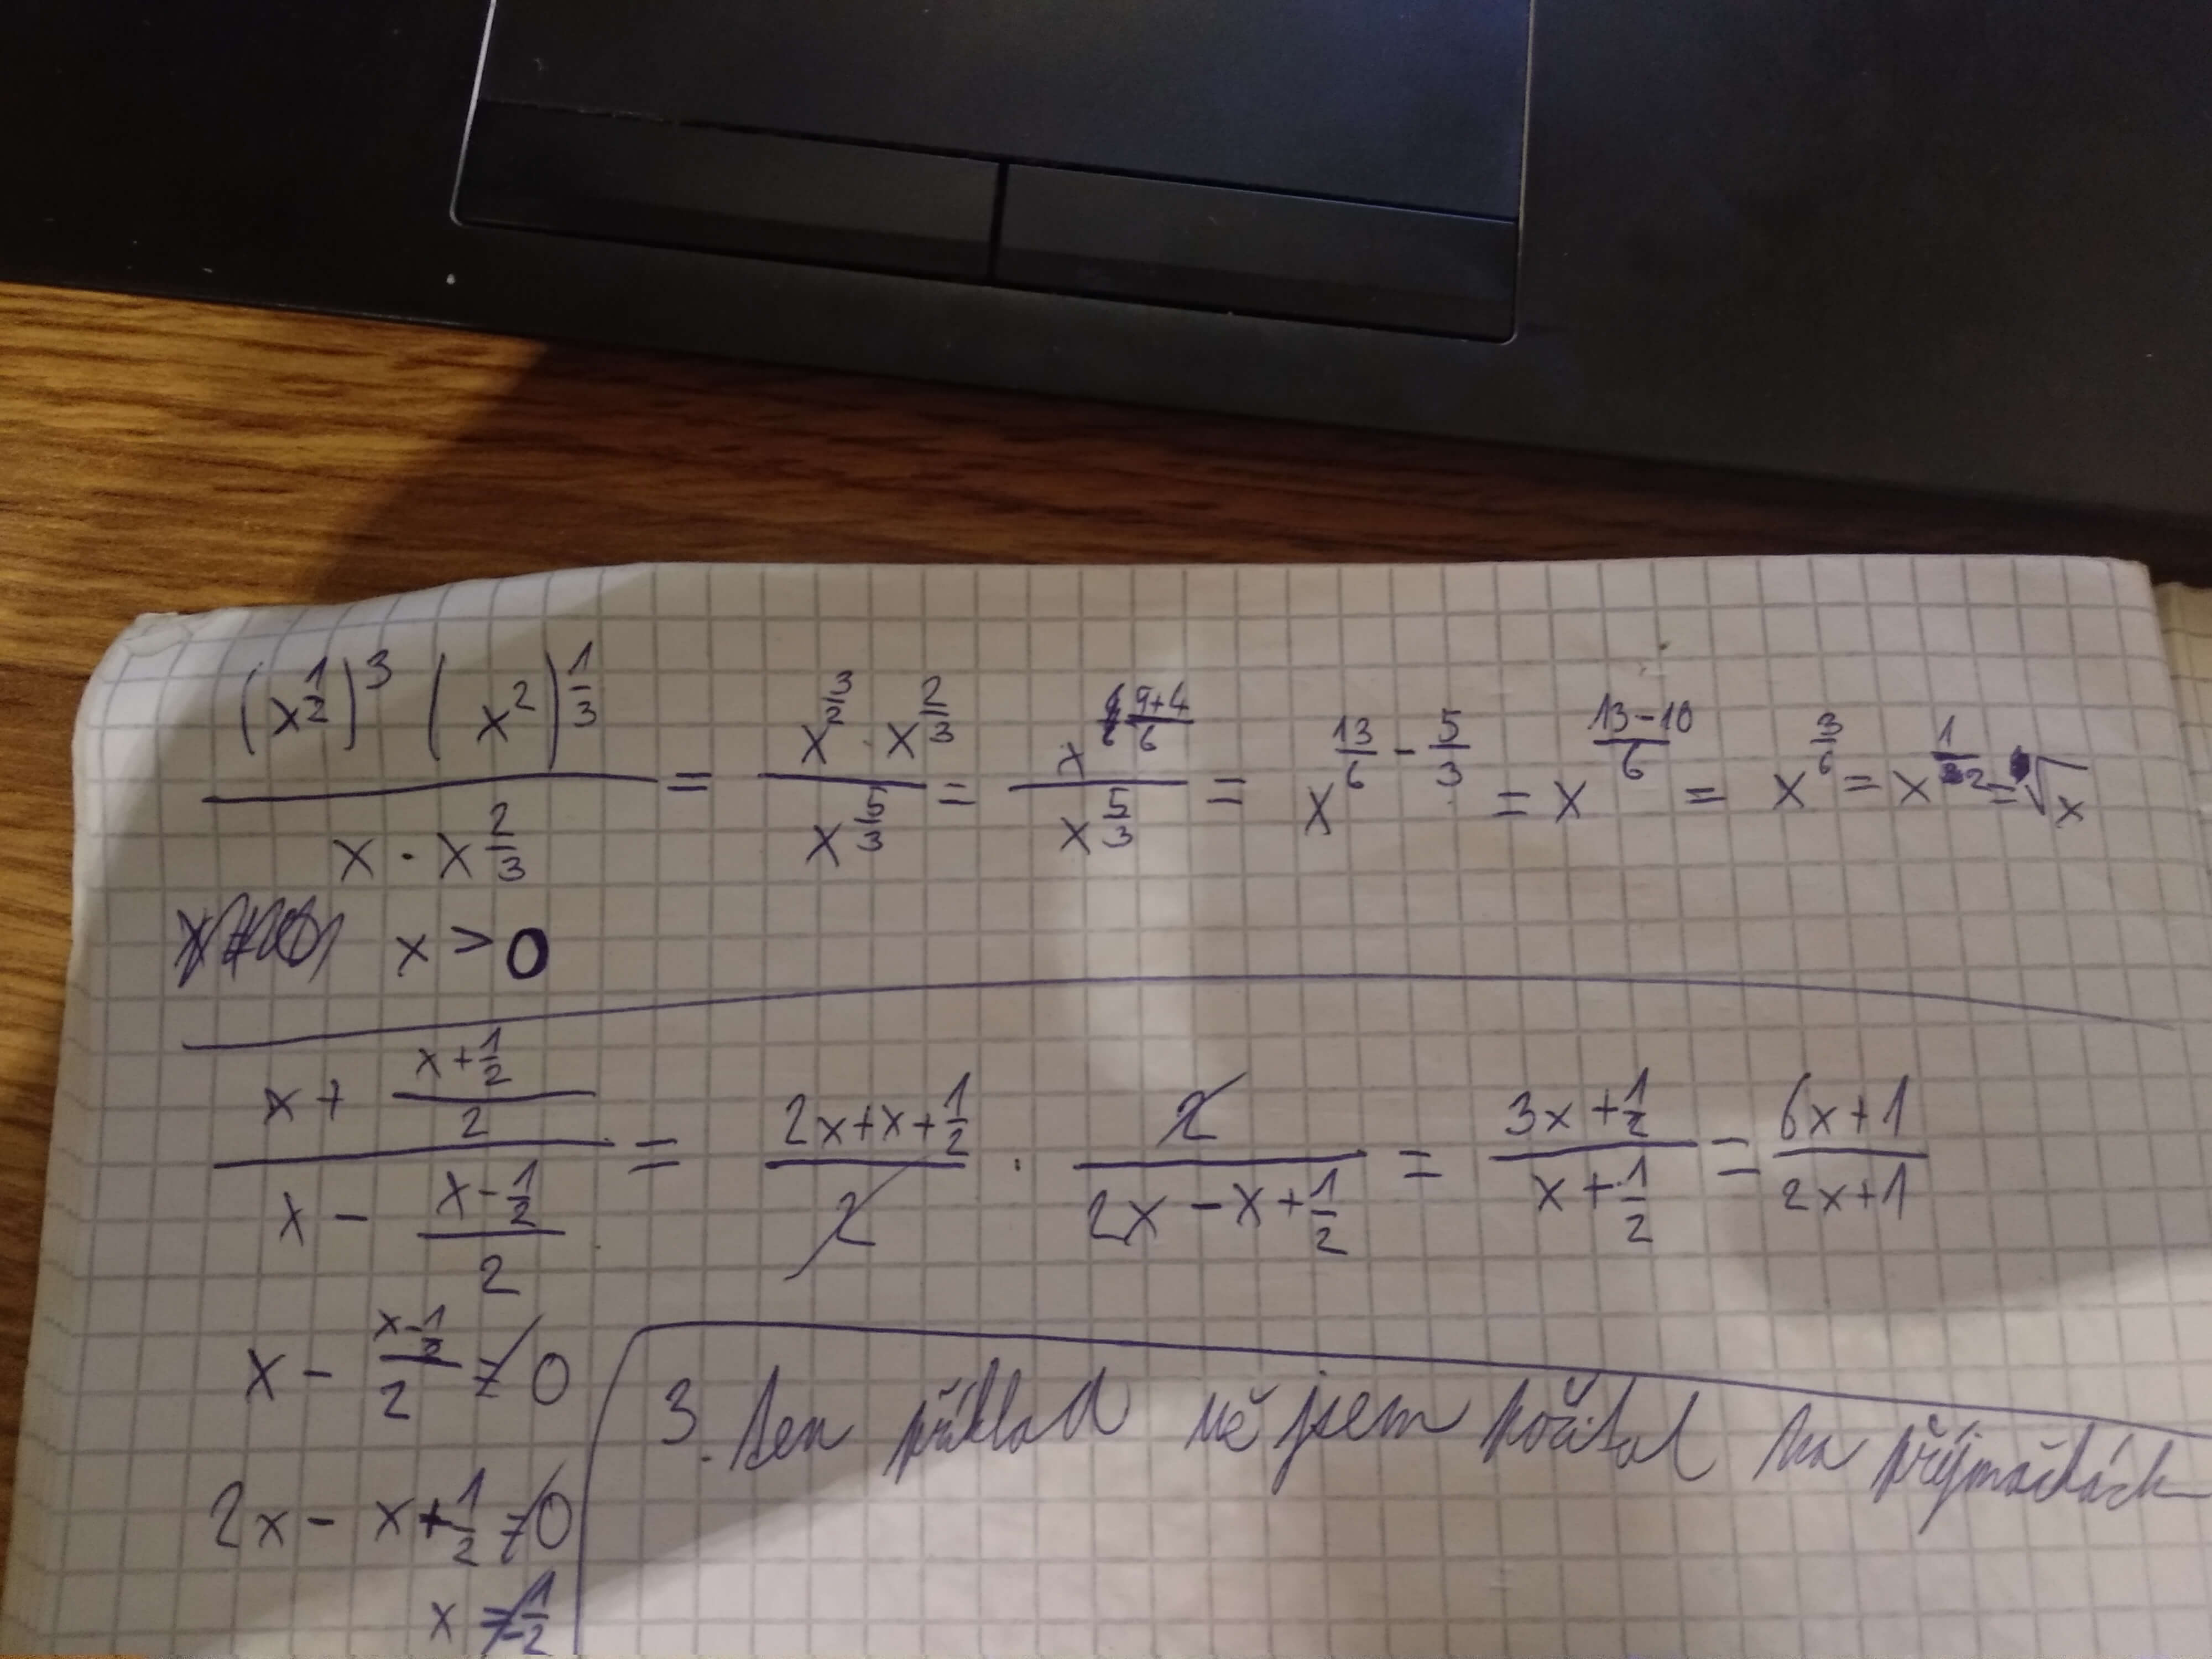 (x^{1/2})^3 (x^2)^{1/3} / x · x^{2/3} = x^{3/2} · x^{2/3} / x^{5/3} = x^{9+4/6} / x^{5/3} = x^{13/6 - 5/3} = x^{13-10/6} = x^{3/6} = x^{1/2} = √x
x > 0
x + (x + 1/2)/2 / x - (x - 1/2)/2 = 2x + x + 1/2 / 2 · 2 / 2x - x + 1/2 = 3x + 1/2 / x + 1/2 = 6x + 1 / 2x + 1
x - (x - 1/2)/2 ≠ 0
2x - x + 1/2 ≠ 0
x ≠ -1/2
3. ten příklad už jsem počítal na přijmačkách